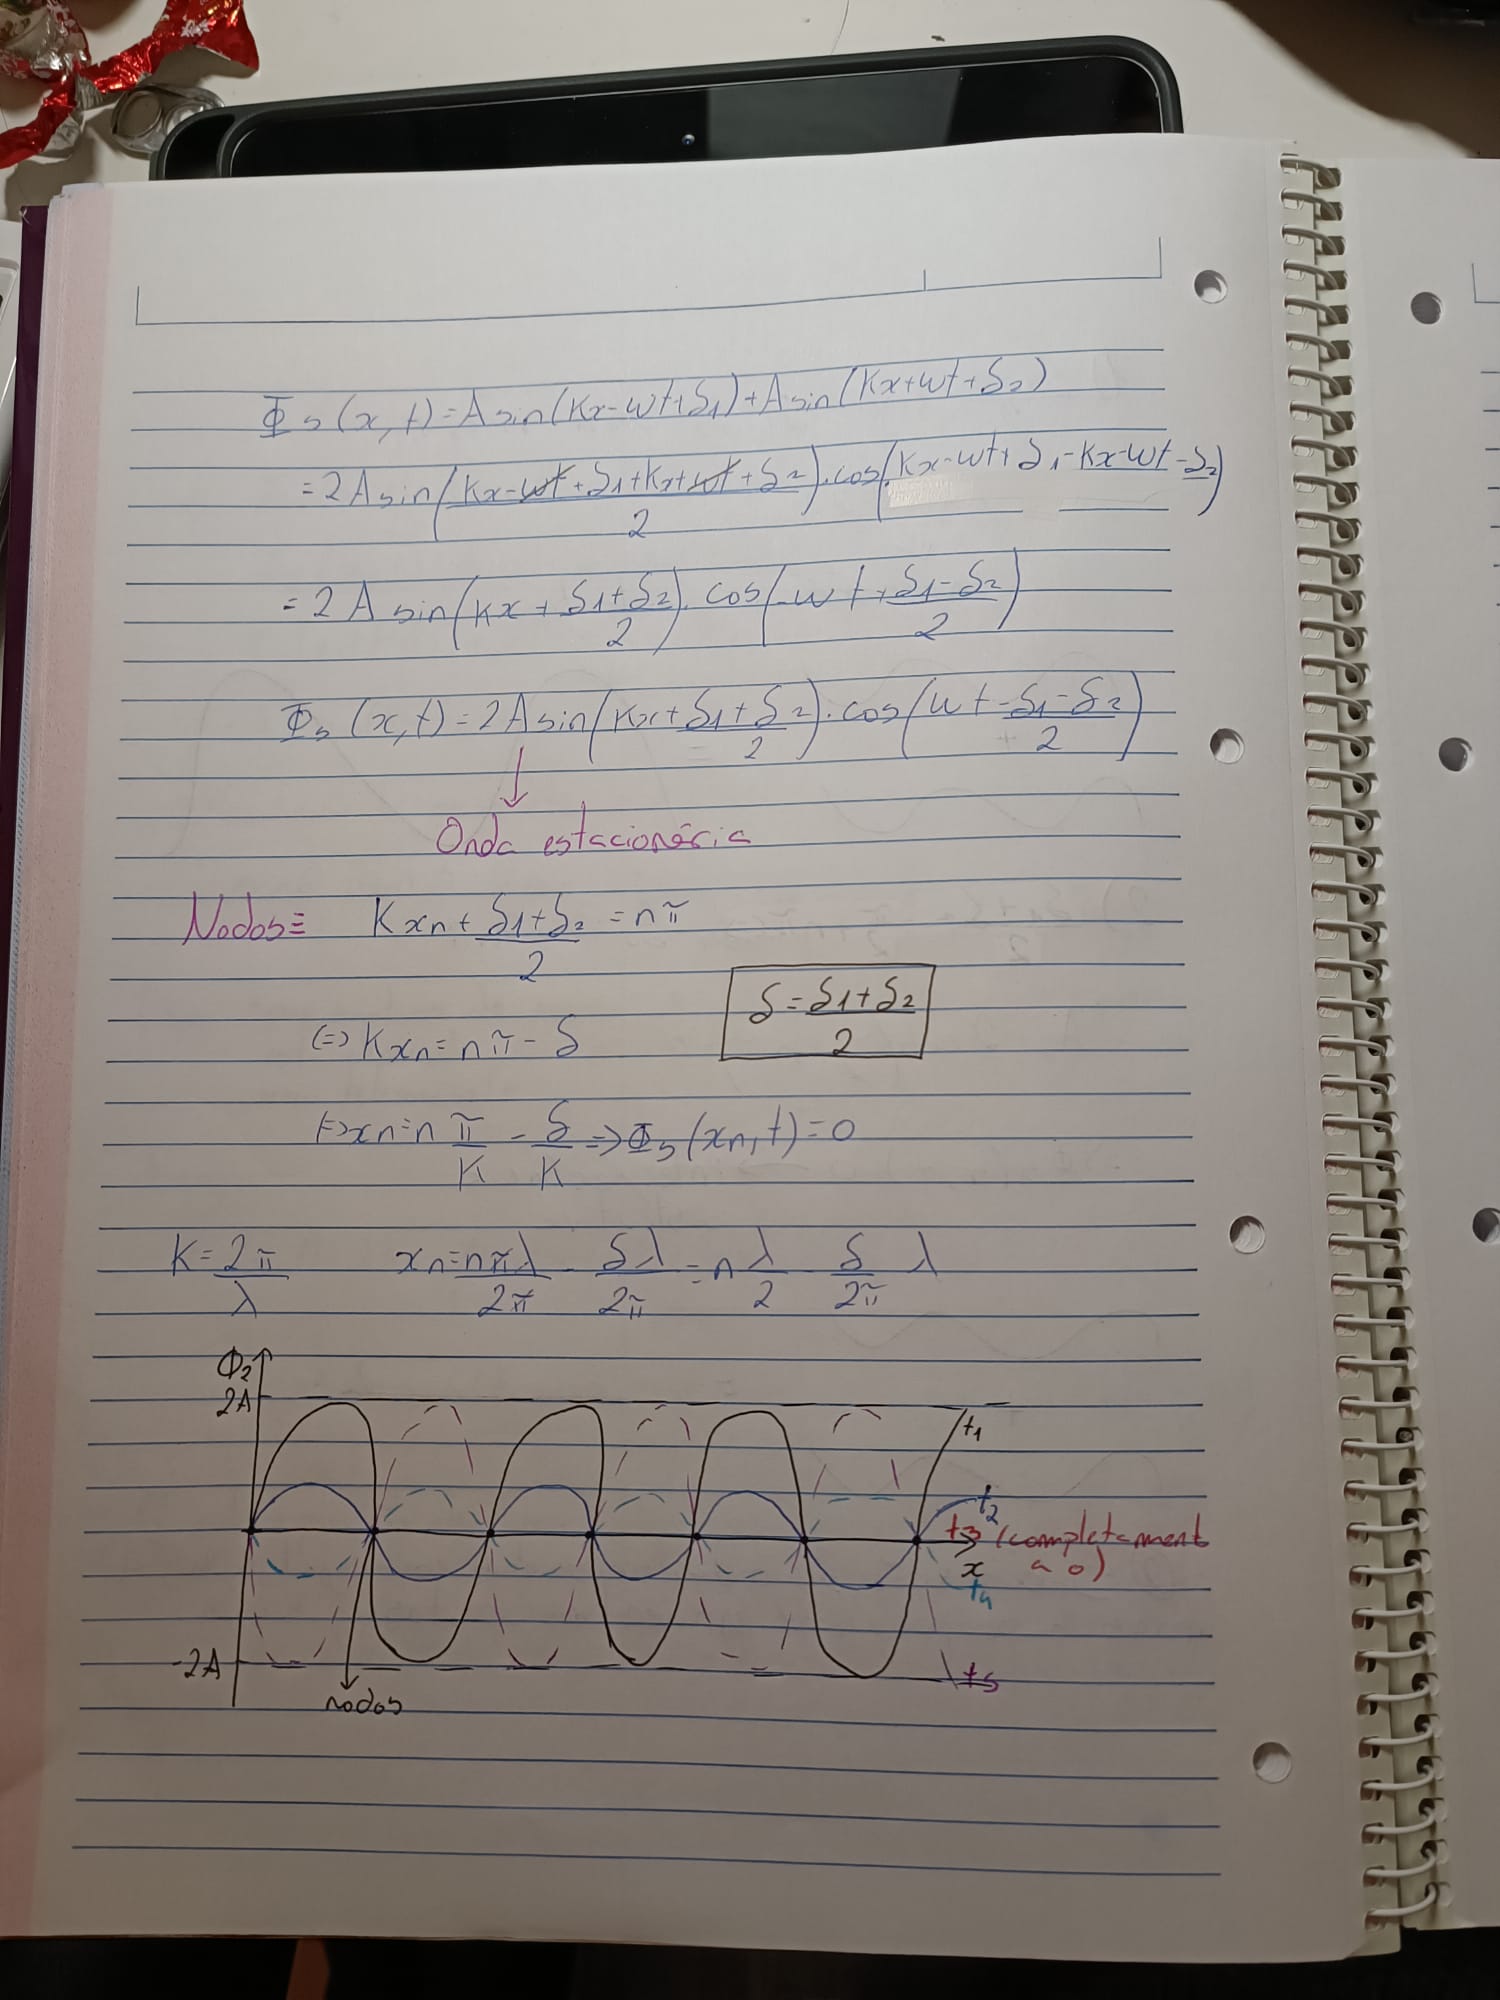 Φs(x,t)=A sin(Kx-ωt+δ1)+A sin(Kx+ωt+δ2)
=2A sin((Kx-ωt+δ1+Kx+ωt+δ2)/2).cos(Kx-ωt+δ1-Kx-ωt-δ2)
=2A sin(Kx+(δ1+δ2)/2).cos(-ωt+(δ1-δ2)/2)
Φs(x,t)=2A sin(Kx+(δ1+δ2)/2).cos(ωt-(δ1-δ2)/2)
↓
Onda estacionária
Nodos≡ Kxn+(δ1+δ2)/2=nπ
δ=(δ1+δ2)/2
(=) Kxn=nπ-δ
(=) xn=n π/K - δ/K => Φs(xn,t)=0
K=2π/λ xn=nπλ/2π - δλ/2π = n λ/2 - δ/2π λ
Φ2
2A
t1
t2
t3 (completament
a 0)
x
t4
-2A
t5
nodos